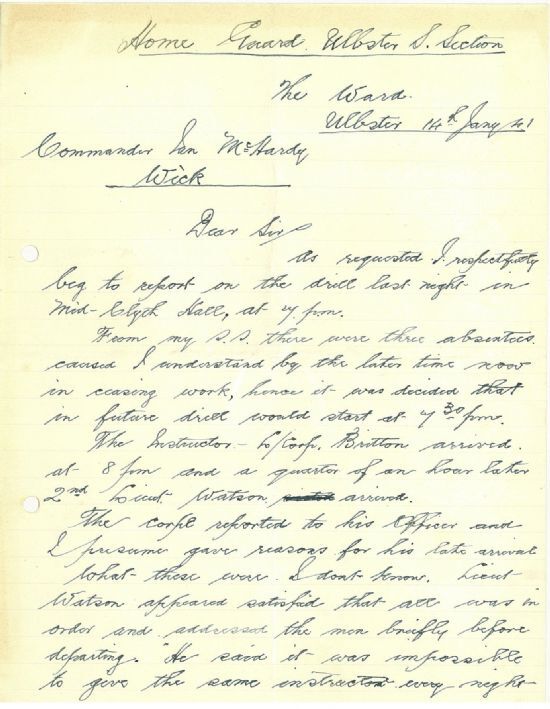 Home Guard Ulbster S. Section
The Ward.
Ulbster 14th Jany 41
Commander Ian McHardy
Wick
Dear Sir
As requested I respectfully
beg to report on the drill last night in
Mid-Clyth Hall, at 7 p.m.
From my S.S. there were three absentees
caused I understand by the later time now
in ceasing work, hence it was decided that
in future drill would start at 7 30 p.m.
The Instructor - L/Corp. Britton arrived
at 8 pm and a quarter of an hour later
2nd Lieut Watson arrived.
The corpl reported to his Officer and
I presume gave reasons for his late arrival
What these were I dont know. Lieut
Watson appeared satisfied that all was in
order and addressed the men briefly before
departing. "He said it was impossible
to give the same instructor every night